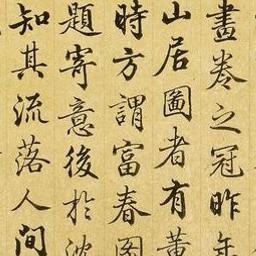 畫卷之冠昨年
山居圖者有董
時方謂富春圖
題寄意後於沈
知其流落人間